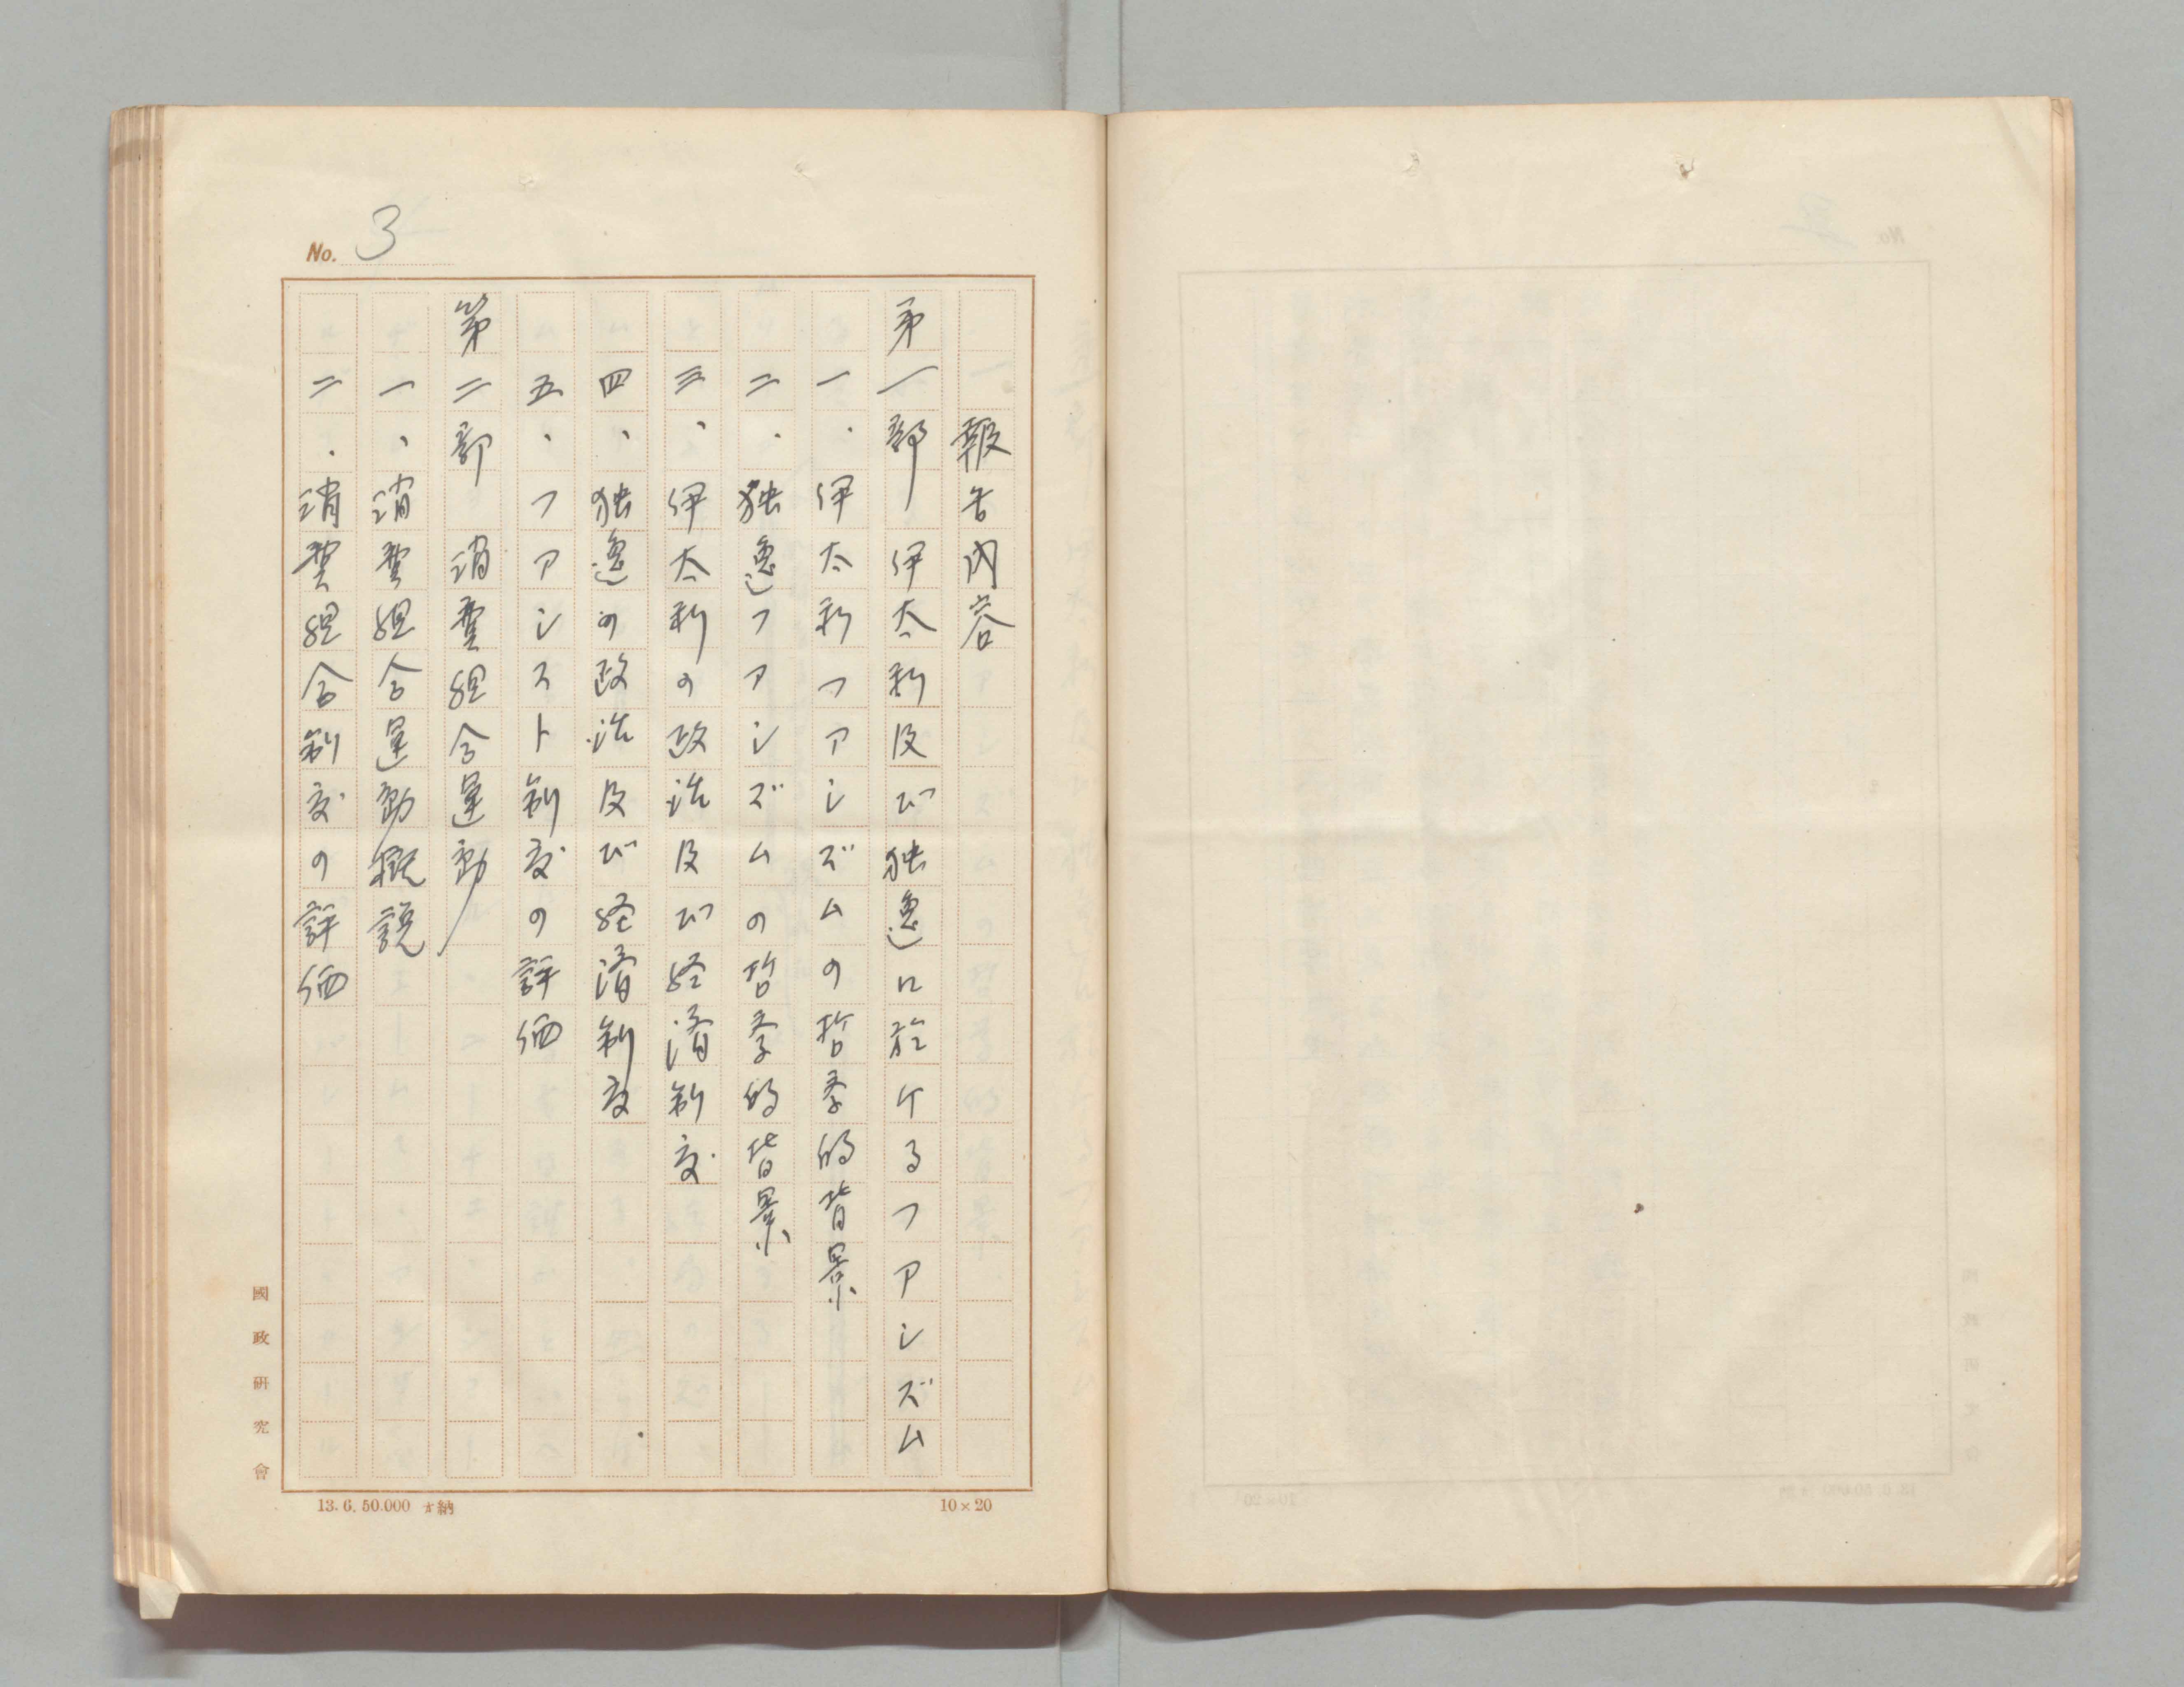 No. 3
報告内容
第一部 伊太利及び独逸に於けるファシズム
一、伊太利ファシズムの哲学的背景
二、独逸ファシズムの哲学的背景
三、伊太利の政治及び経済制度
四、独逸の政治及び経済制度
五、ファシスト制度の評価
第二部 消費組合運動
一、消費組合運動概説
二、消費組合制度の評価
國政研究會
13. 6. 50.000 納
10×20